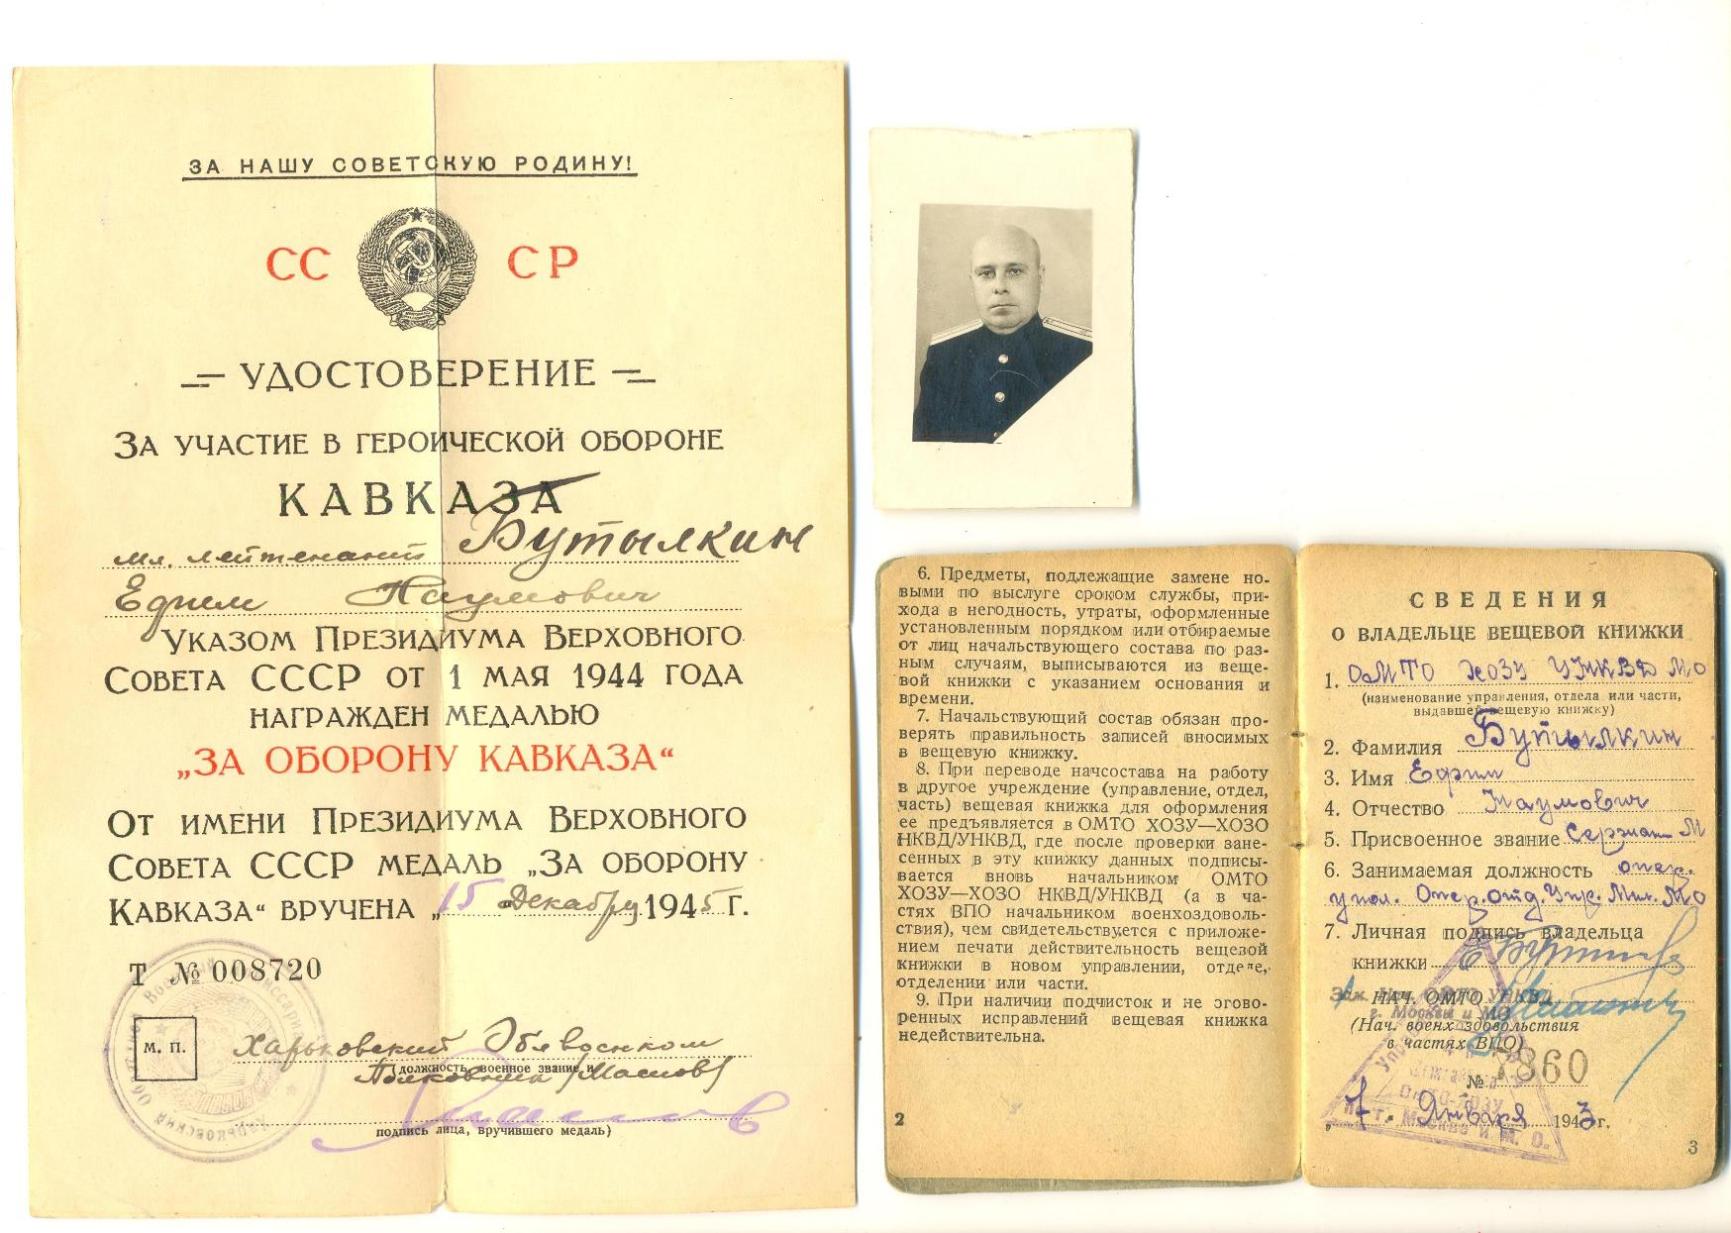 ЗА НАШУ СОВЕТСКУЮ РОДИНУ!
СС СР
УДОСТОВЕРЕНИЕ
ЗА УЧАСТИЕ В ГЕРОИЧЕСКОЙ ОБОРОНЕ
КАВКАЗА
мл. лейтенант Бутылкин
Ефим Наумович
УКАЗОМ ПРЕЗИДИУМА ВЕРХОВНОГО
СОВЕТА СССР ОТ 1 МАЯ 1944 ГОДА
НАГРАЖДЕН МЕДАЛЬЮ
„ЗА ОБОРОНУ КАВКАЗА“
ОТ ИМЕНИ ПРЕЗИДИУМА ВЕРХОВНОГО
СОВЕТА СССР МЕДАЛЬ „ЗА ОБОРОНУ
КАВКАЗА“ ВРУЧЕНА „15 Декабру 1945 Г.
Т № 008720
М. П.
Харьковский Облвоенком
(должность, военное звание и
Полковник /Маслов/
подпись лица, вручившего медаль)
6. Предметы, подлежащие замене но-
выми по выслуге сроком службы, при-
хода в негодность, утраты, оформленные
установленным порядком или отбираемые
от лиц начальствующего состава по раз-
ным случаям, выписываются из веще-
вой книжки с указанием основания и
времени.
7. Начальствующий состав обязан про-
верять правильность записей вносимых
в вещевую книжку.
8. При переводе начсостава на работу
в другое учреждение (управление, отдел,
часть) вещевая книжка для оформления
ее предъявляется в ОМТО ХОЗУ—ХОЗО
НКВД/УНКВД, где после проверки зане-
сенных в эту книжку данных подписы-
вается вновь начальником ОМТО
ХОЗУ—ХОЗО НКВД/УНКВД (а в ча-
стях ВПО начальником военхоздоволь-
ствия), чем свидетельствуется с приложе-
нием печати действительность вещевой
книжки в новом управлении, отделе,
отделении или части.
9. При наличии подчисток и не огово-
ренных исправлений вещевая книжка
недействительна.
2
СВЕДЕНИЯ
О ВЛАДЕЛЬЦЕ ВЕЩЕВОЙ КНИЖКИ
1. ОМТО ХОЗУ УНКВД МО
(наименование управления, отдела или части,
выдавшей вещевую книжку)
2. Фамилия Бутылкин
3. Имя Ефим
4. Отчество Наумович
5. Присвоенное звание Сержант М
6. Занимаемая должность опер.
упол. Опер.отд.Упр. Мил. МО
7. Личная подпись владельца
книжки
НАЧ. ОМТО УНКВД
г. Москвы и МО
(Нач. военх здовольствия
в частях ВПО)
№ 7860
„7 “ Января 1943 г.
3